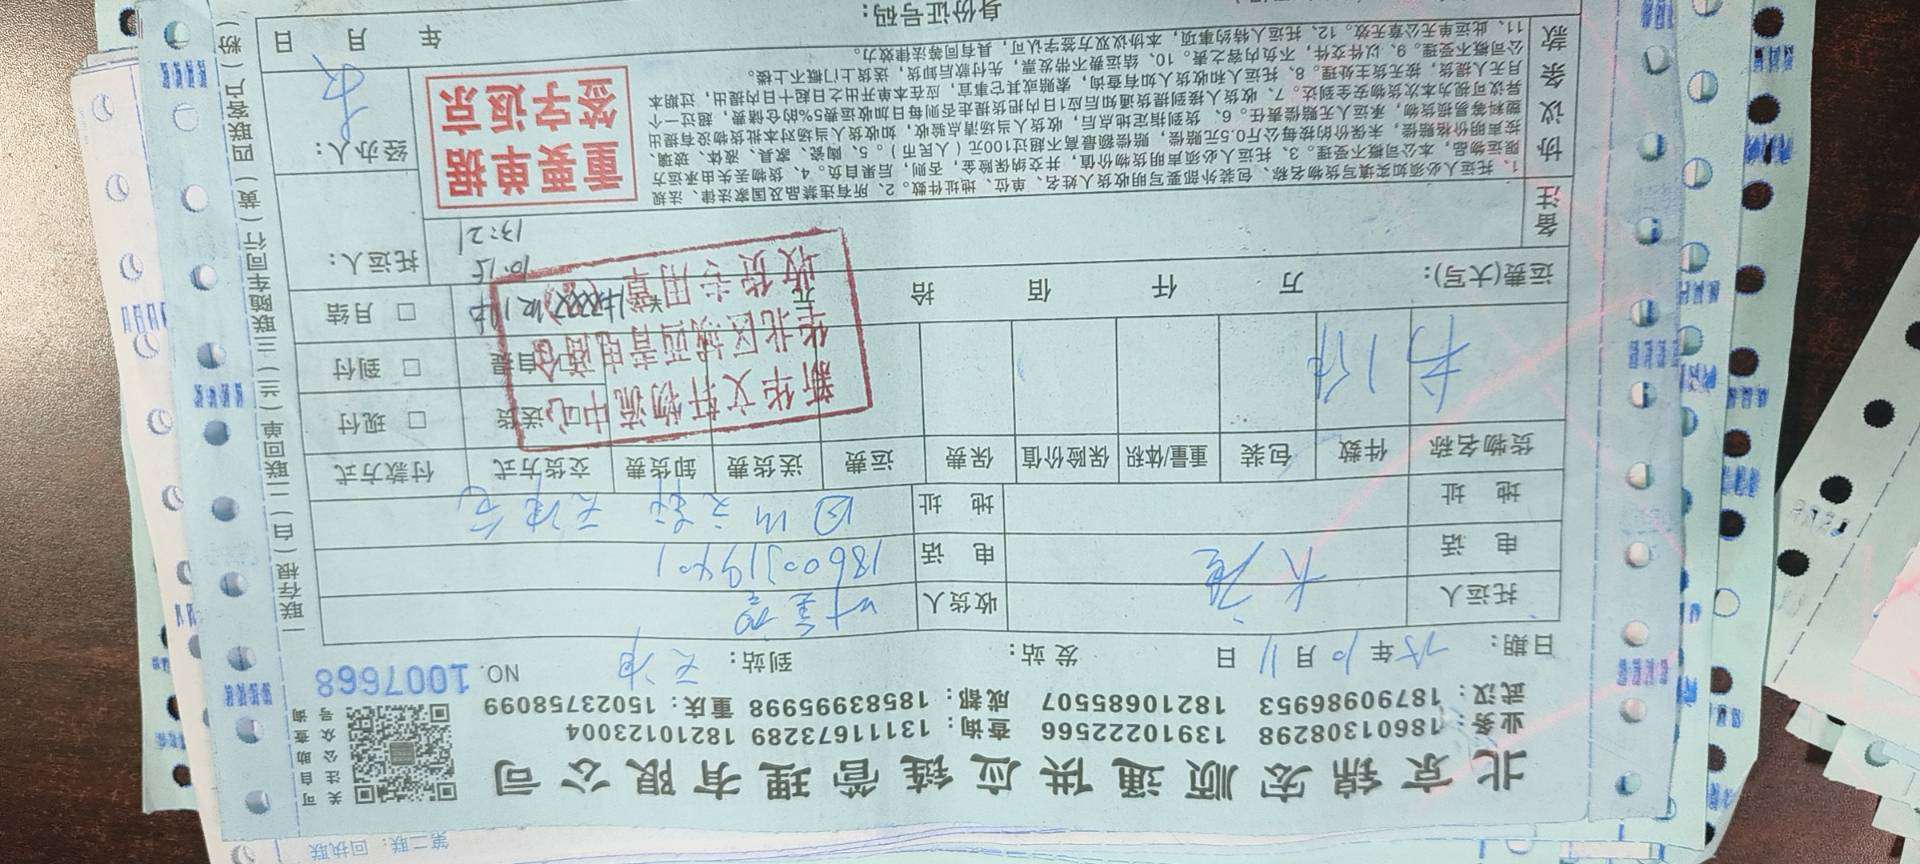 北京锦宏顺通供应链管理有限公司
关注公众号
可自助查询
业务：18601308298 13910222566 查询：13111673289 18210123004
武汉：18790986953 18210685507 成都：18583995998 重庆：15023758099
日期： 年10月11日 发站： 到站：天津 NO. 1007668
托运人 大唐 收货人
电话 电话 18600319401
地址 地址 四川文轩 天津仓
货物名称 件数 包装 重量/体积 保险价值 保费 运费 送货费 卸货费 交货方式 付款方式
书 1件 送货 □ 现付
自提 □ 到付
□ 月结
运费(大写)： 万 仟 佰 拾 元
新华文轩物流中心
华北区域西青电商仓
收货专用章
10.15
13:21
备注
托运人：
经办人：
年 月 日
协议条款
1、托运人必须如实填写货物名称、包装外部要写明收货人姓名、单位、地址件数。2、所有违禁品及国家法律、法规
限运物品，本公司概不受理。3、托运人必须声明货物价值，并交纳保险金，否则，后果自负。4、货物丢失由承运方
按声明价格赔偿，未保价的按每公斤0.5元赔偿，赔偿额最高不超过100元（人民币）。5、陶瓷、家具、液体、玻璃、
塑料等易损货物，承运人无赔偿责任。6、货到指定地点后，收货人当场清点验收，如收货人当场对本批货物没有提出
异议可视为本次货物安全到达。7、收货人接到提货通知如后应1日内把货提走否则每日加收运费5%的仓储费，超过一个
月无人提货，按无货主处理。8、托运人和收货人如有查询，索赔或其它事宜，应在本单开出之日起十日内提出，过期本
公司概不受理。9、以件交件，不负内容之责。10、结运费不带发票，先付款后卸货，送货上门概不上楼。
11、此运单无公章无效。12、托运人特约事项，本协议双方签字认可，具有同等法律效力。
重要单据
签字返京
身份证号码：
一联存根(白)二联回单(兰)三联随车同行(黄)四联客户(粉)
第二联：回执联